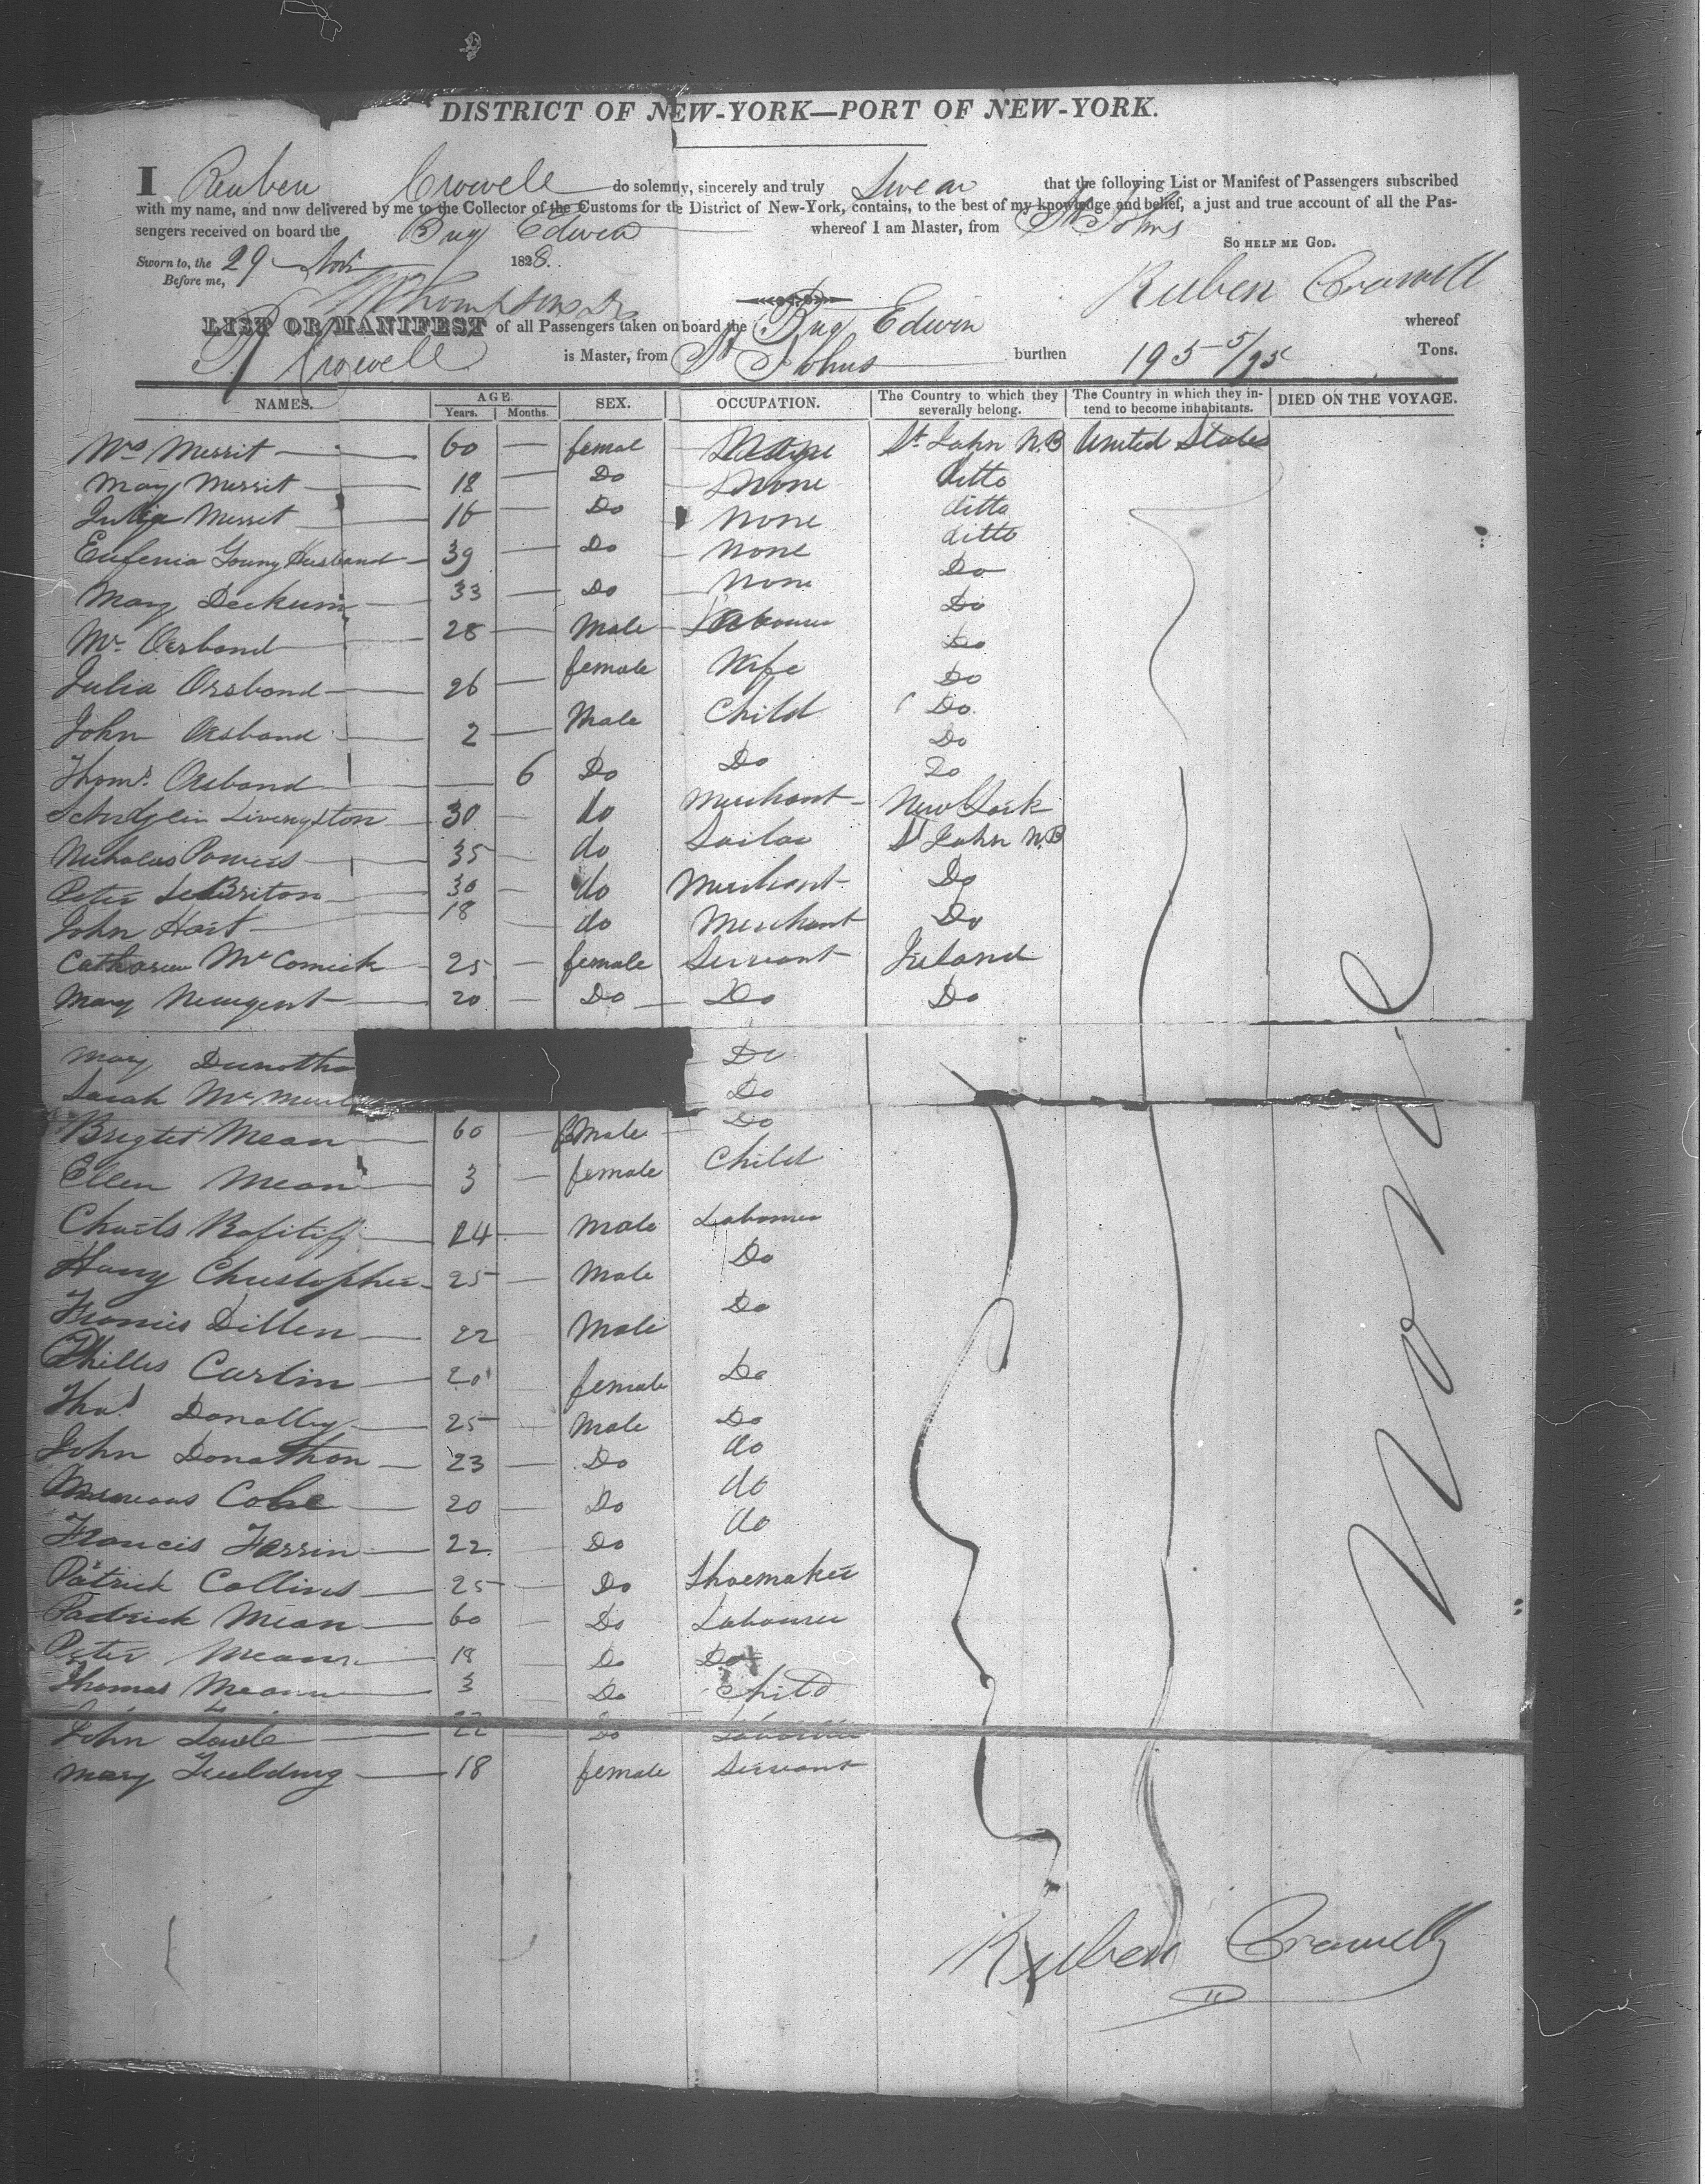 DISTRICT OF NEW-YORK—PORT OF NEW-YORK.
I Reuben Crowell do solemnly, sincerely and truly Swear that the following List or Manifest of Passengers subscribed
with my name, and now delivered by me to the Collector of the Customs for the District of New-York, contains, to the best of my knowledge and belief, a just and true account of all the Pas-
sengers received on board the Brig Edwin whereof I am Master, from St Johns
So HELP ME GOD.
Sworn to, the 29 Nov 1828.
Before me, Thompson
Reuben Crowell
LIST OR MANIFEST of all Passengers taken on board the Brig Edwin whereof
R Crowell is Master, from St Johns burthen 195 5/95 Tons.
NAMES. AGE. Years. Months. SEX. OCCUPATION. The Country to which they severally belong. The Country in which they intend to become inhabitants. DIED ON THE VOYAGE.
Mrs Merrit 60 femal None St. John N.B United States
May Merrit 18 Do None ditto
Julia Merrit 16 Do None ditto
Eufenia Young Husband 39 Do None ditto
Mary Deckum 33 Do None Do
Mr Orsband 28 Male Labourer Do
Julia Orsband 26 female Wife Do
John Orsband 2 Male Child Do
Thoms. Orsband 6 Do Do Do
Livingston 30 do Merchant New York
Nicholas Powers 35 do Sailor St John N.B
Peter LeBriton 30 do Merchant Do
John Hart 18 do Merchant Do
Catharien McComick 25 female Servant Ireland
Mary Neugent 20 Do Do Do
Mary Dunotho Do
Sarah Mc Do
Brigtet Mean 60 feMale Do
Ellen Mean 3 female Child
Charls 24 Male Labourer
Harry Christopher 25 Male Do
Francis Dillen 22 Male Do
Philles Carlin 20 female Do
Thos. Donally 25 Male Do
John Donathon 23 Do do
Cole 20 Do do
Francis Farrin 22 Do do
Patrick Collins 25 Do Shoemaker
Padrick Mean 60 Do Labourer
Peter Mean 18 Do Do
Thomas Mean 3 Do Child
John 22 Do Labourer
Mary Fielding 18 female Servant
None
Reuben Crowell